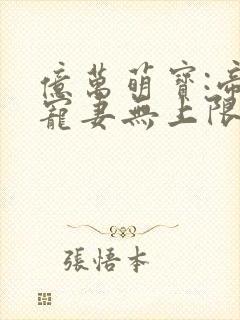 億萬萌寶:帝
寵妻無上限
張悟本